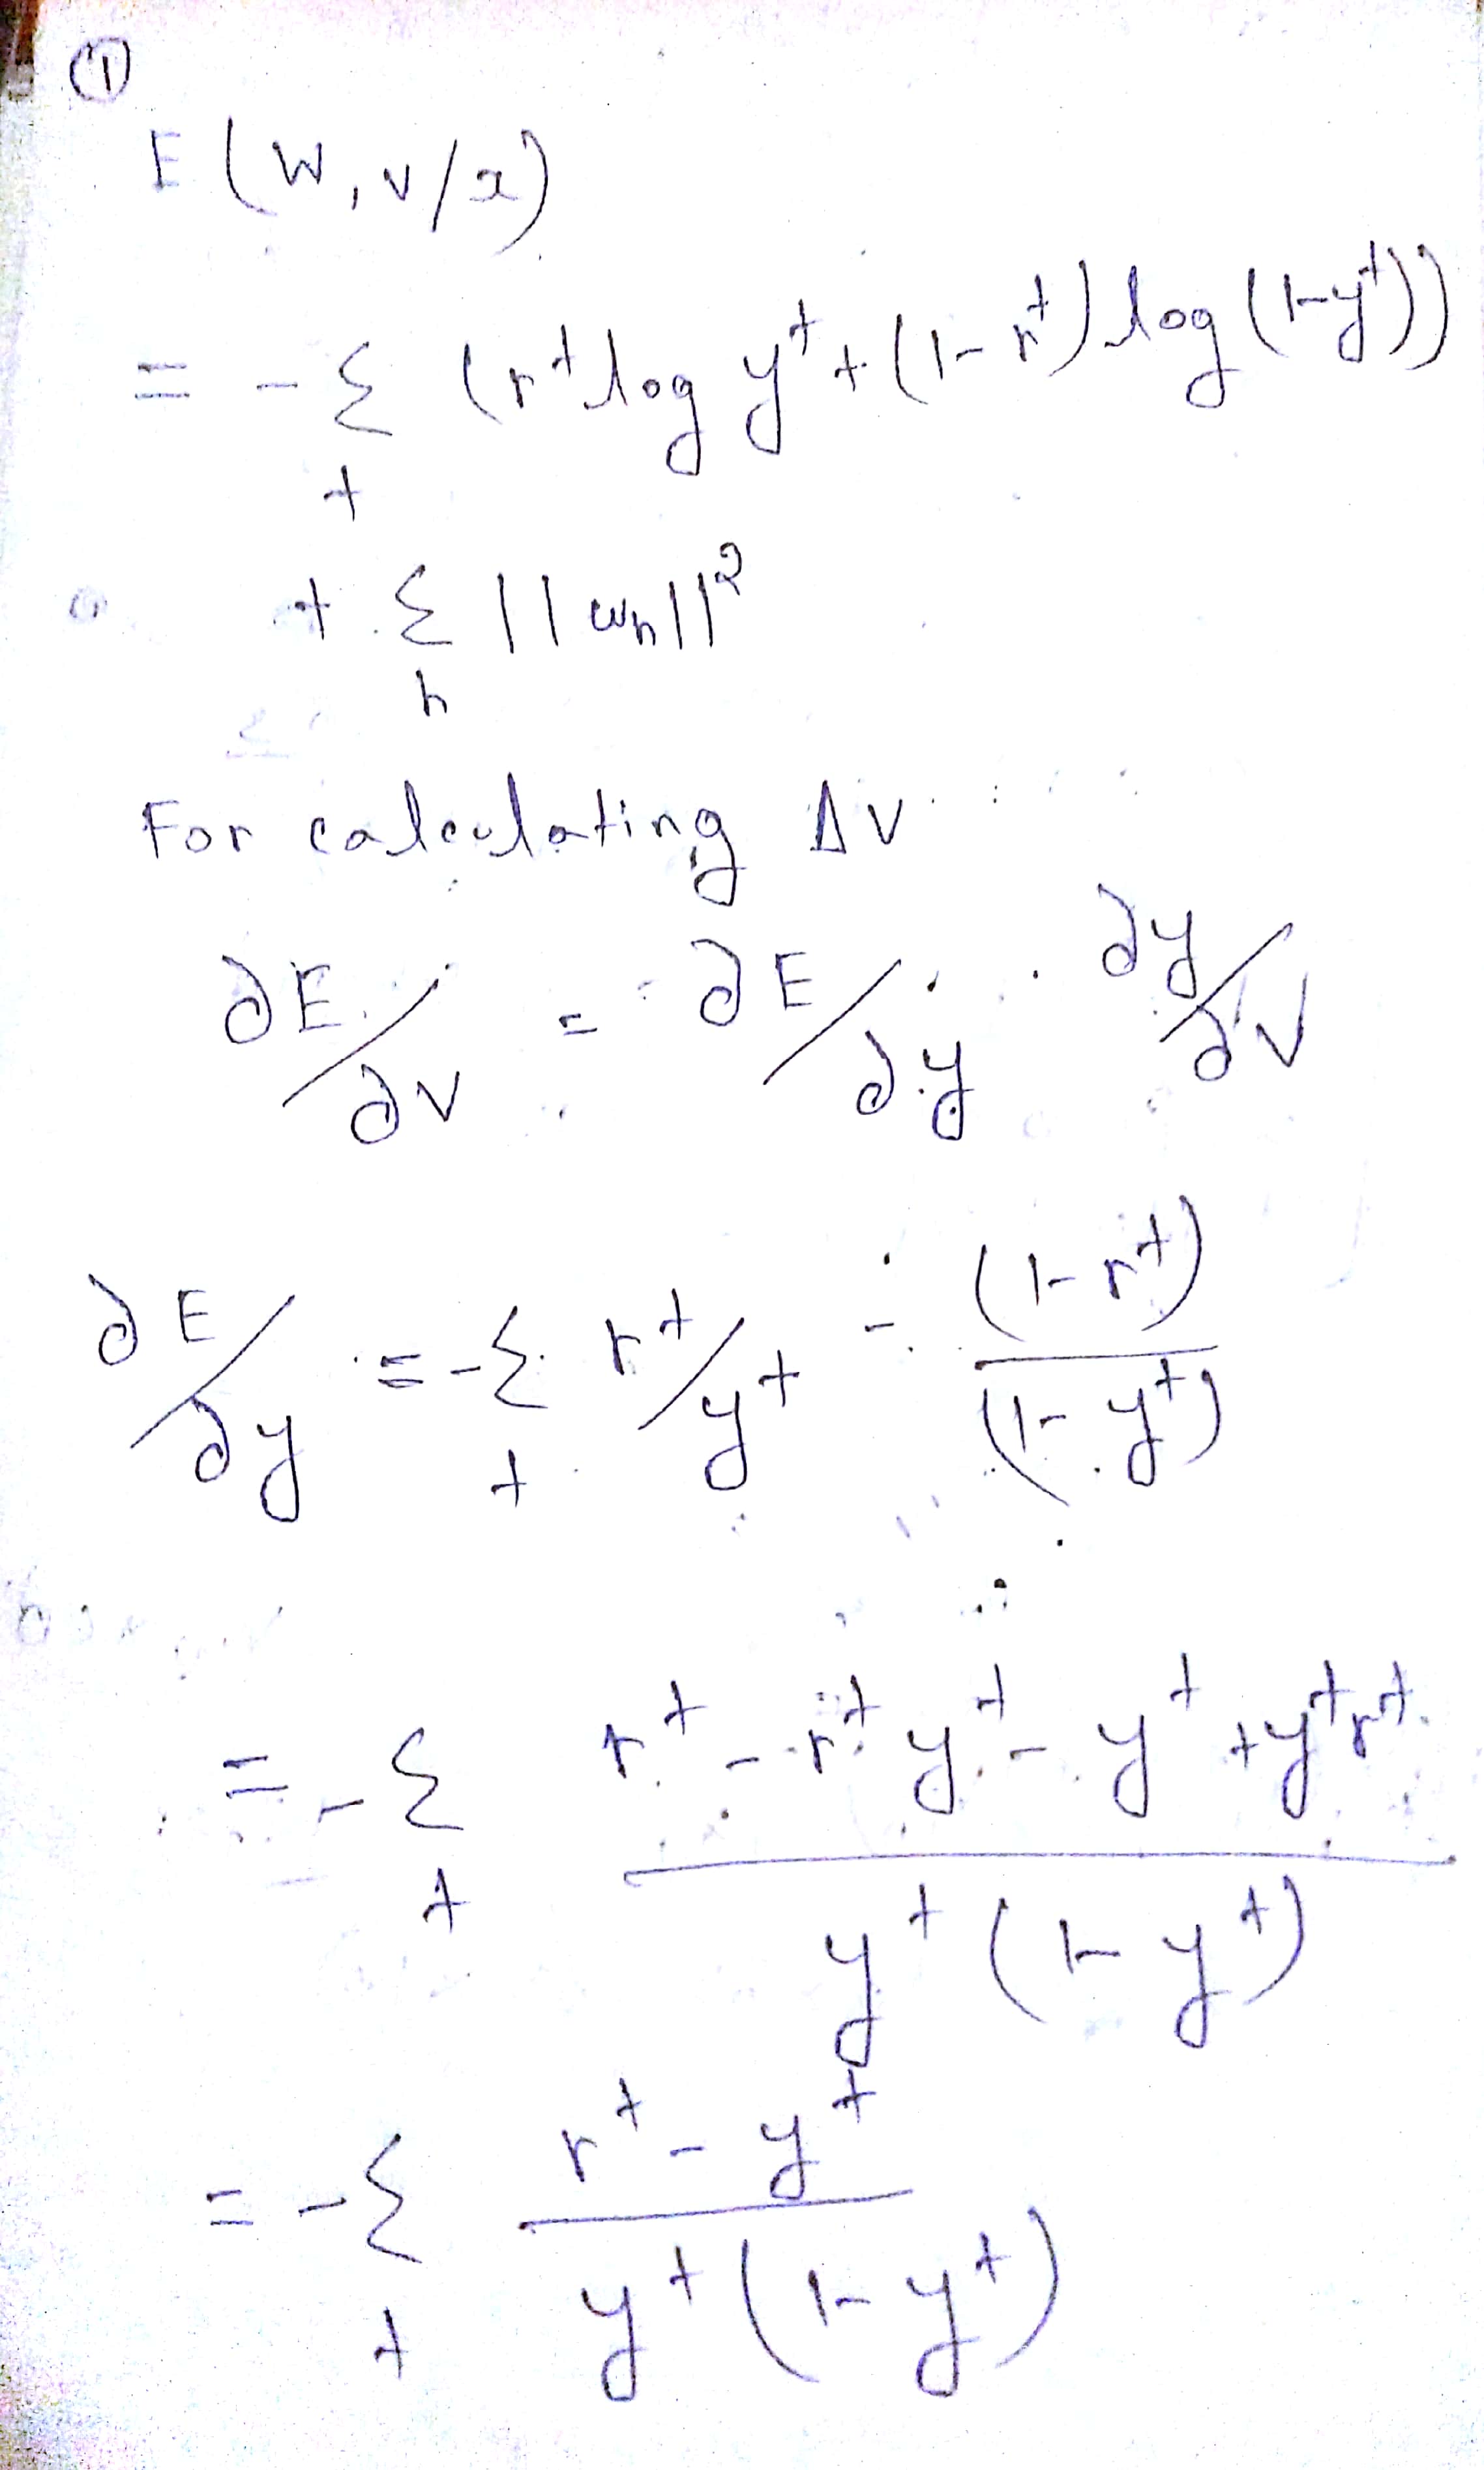 ①
E(W, v/x)
= -Σ (r^t log y^t + (1-r^t) log (1-y^t))
t
+ Σ ||w_h||²
h
For calculating Δv
∂E/∂v = ∂E/∂y . ∂y/∂v
∂E/∂y = -Σ r^t/y^t - (1-r^t)/(1-y^t)
t
= -Σ (r^t - r^t y^t - y^t + y^t r^t)/(y^t (1-y^t))
t
= -Σ (r^t - y^t)/(y^t (1-y^t))
t